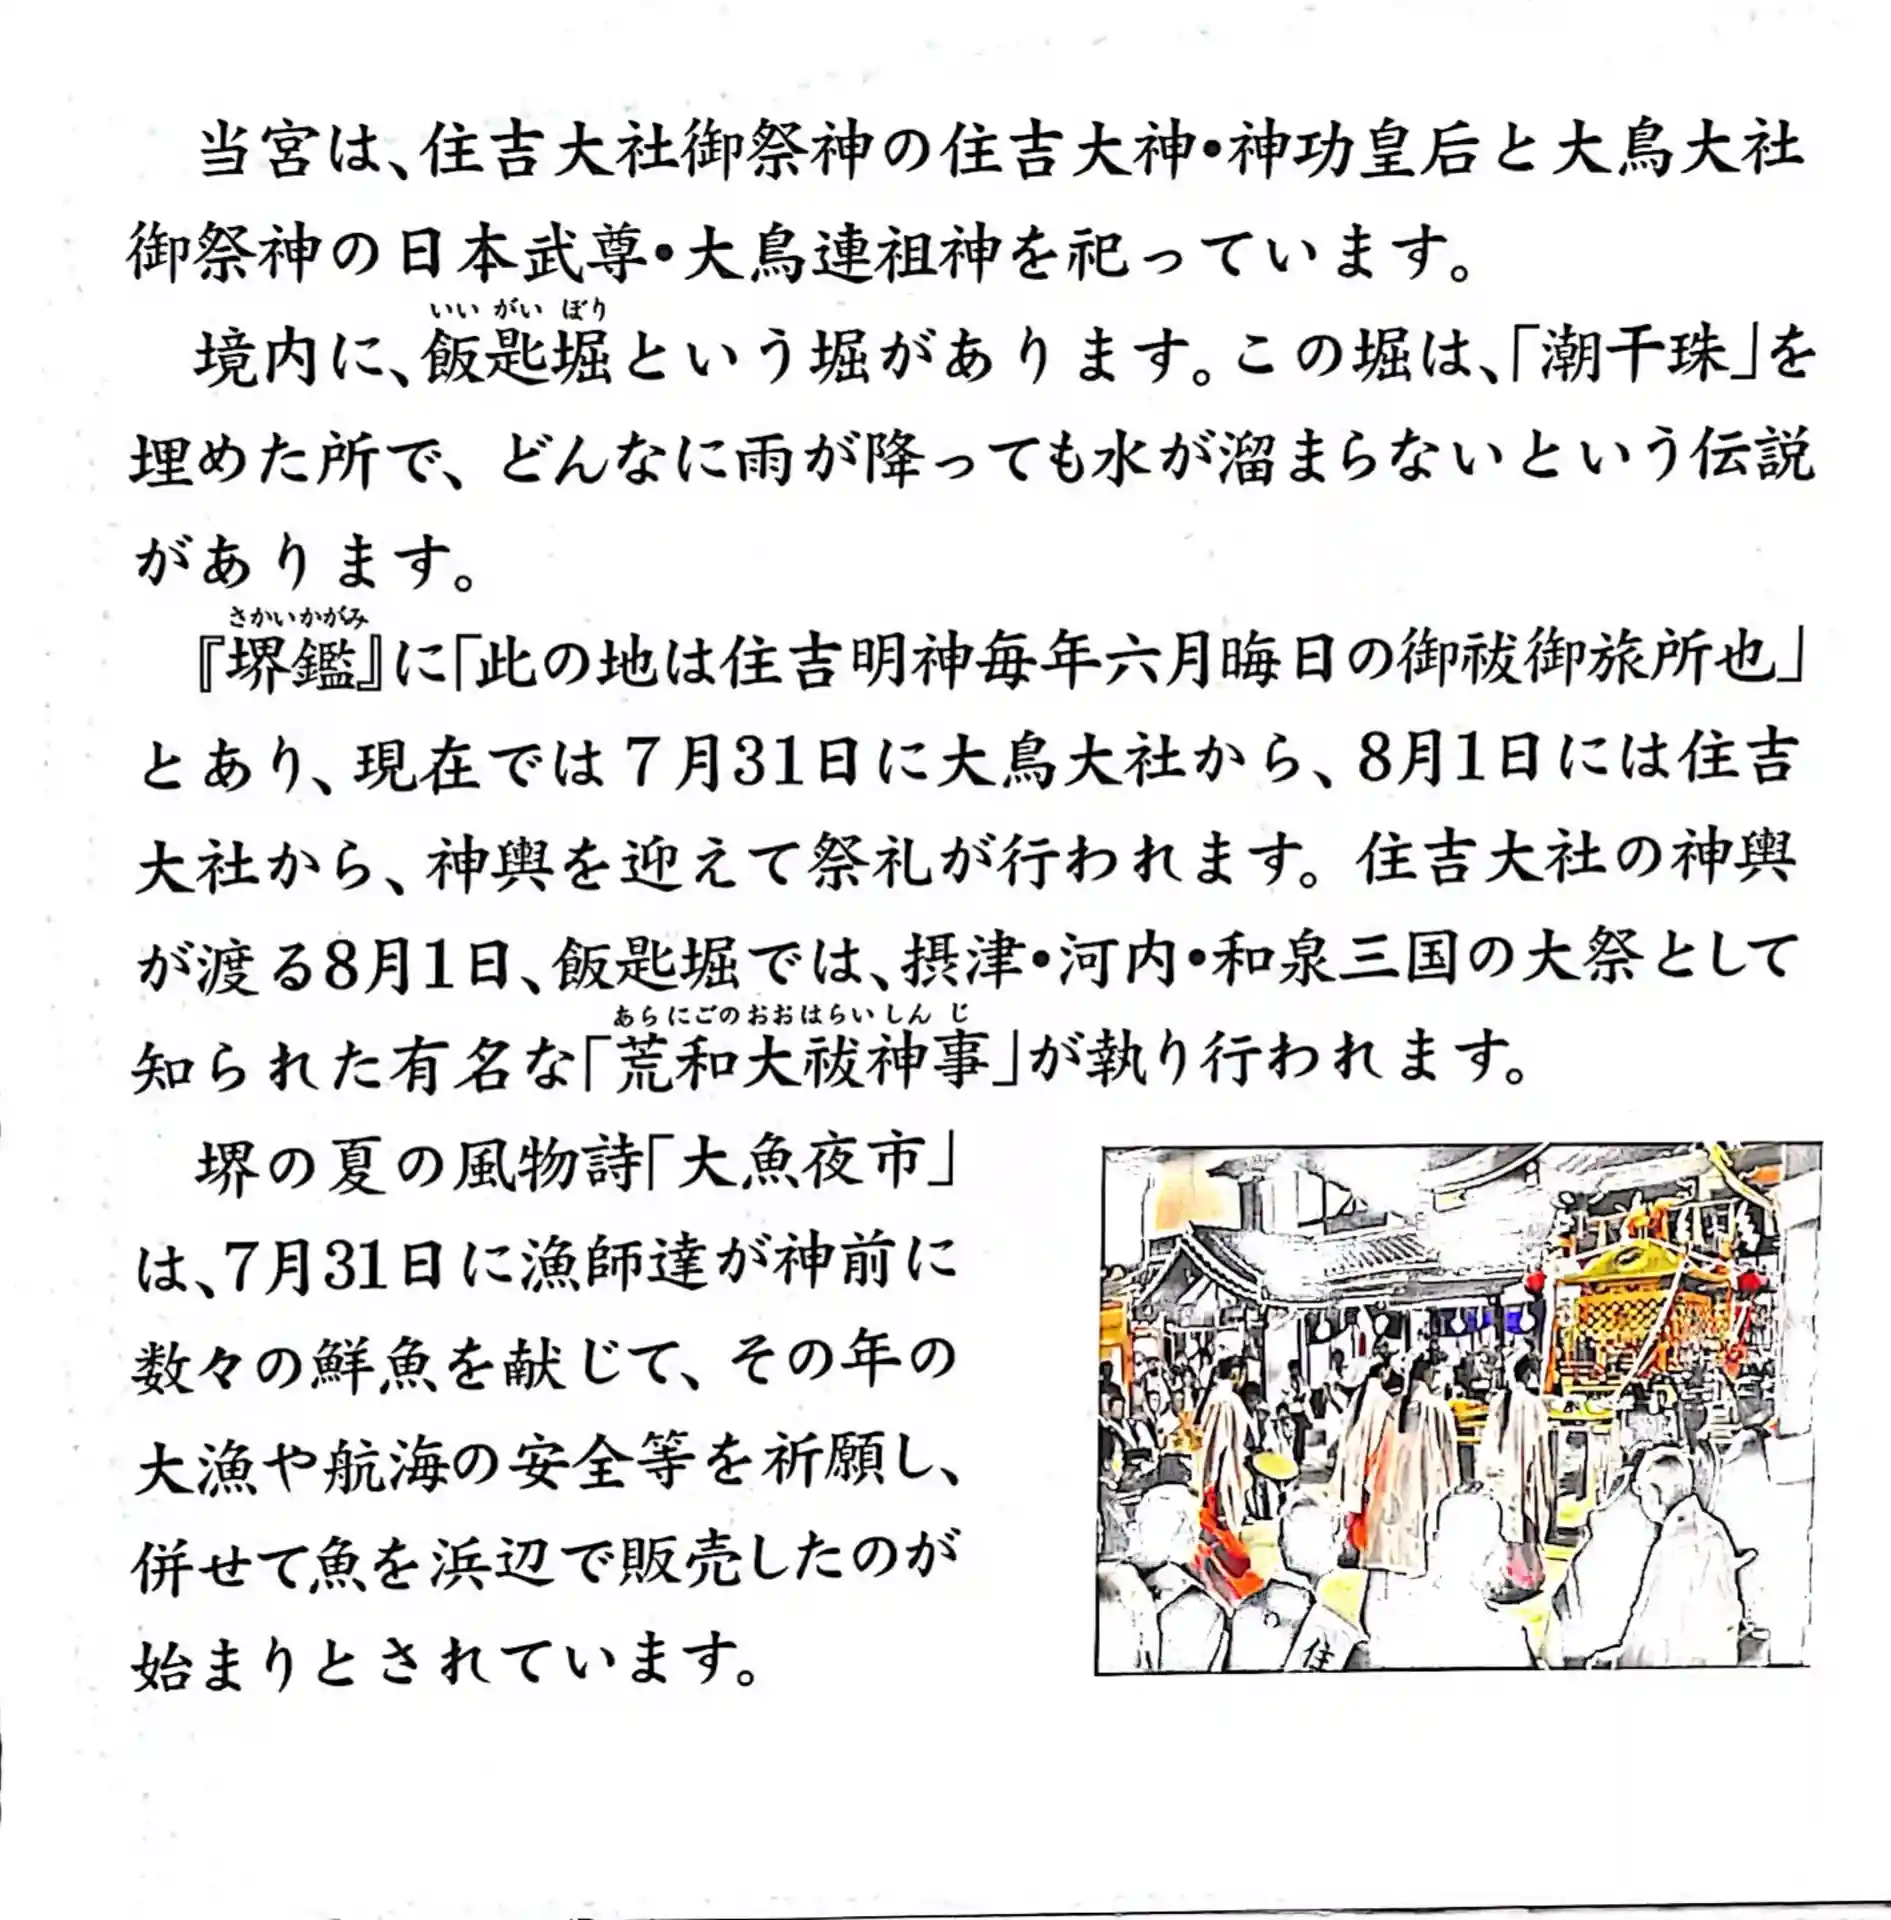 当宮は、住吉大社御祭神の住吉大神・神功皇后と大鳥大社
御祭神の日本武尊・大鳥連祖神を祀っています。
いいがいぼり
境内に、飯匙堀という堀があります。この堀は、「潮干珠」を
埋めた所で、どんなに雨が降っても水が溜まらないという伝説
があります。
さかいかがみ
『堺鑑』に「此の地は住吉明神毎年六月晦日の御祓御旅所也」
とあり、現在では7月31日に大鳥大社から、8月1日には住吉
大社から、神輿を迎えて祭礼が行われます。住吉大社の神輿
が渡る8月1日、飯匙堀では、摂津・河内・和泉三国の大祭として
あらにごのおおはらいしんじ
知られた有名な「荒和大祓神事」が執り行われます。
堺の夏の風物詩「大魚夜市」
は、7月31日に漁師達が神前に
数々の鮮魚を献じて、その年の
大漁や航海の安全等を祈願し、
併せて魚を浜辺で販売したのが
始まりとされています。
住